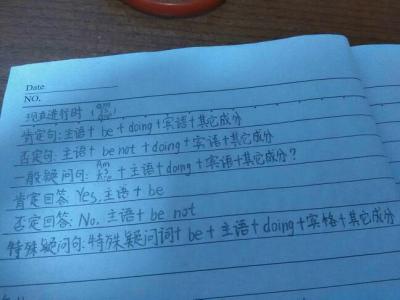 Date
NO.
现在进行时 (am is are)
肯定句:主语+be+doing+宾语+其它成分
否定句:主语+be not+doing+宾语+其它成分
一般疑问句: Am Is Are +主语+doing+宾语+其它成分?
肯定回答 Yes,主语+be
否定回答: No,主语+be not
特殊疑问句:特殊疑问词+be+主语+doing+宾格+其它成分